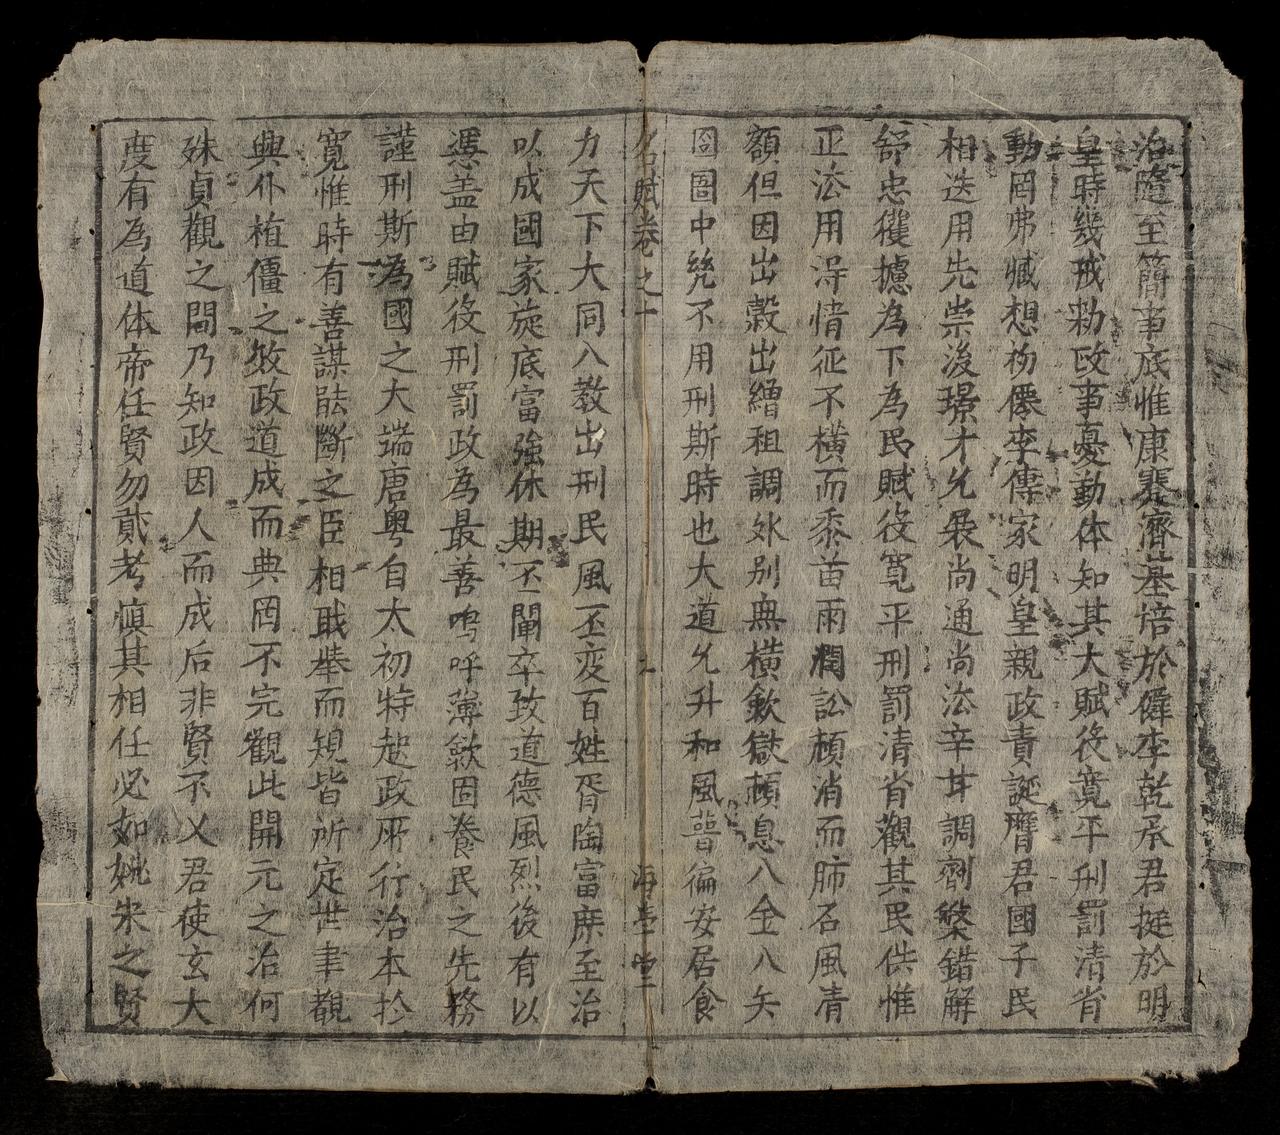 治隨至簡事底惟康賽濟基培於僻李乾承君挺於明
皇時幾戒勑政事憂動体知其大賦役寬平刑罰清省
動罔弗臧想㧾僊李傳家明皇親政責誕膺君國子民
相迭用先崇後璟才允展尚通尚法辛甘調劑槃錯解
舒忠獲攄為下為民賦役寬平刑罰清省觀其民供惟
正法用淂情征不橫而黍苗雨潤訟頓消而肺石風清
額但因出穀出繒租調外別無橫歛獄頓息八金八矢
囹圄中凳不用刑斯時也大道允升和風普徧安居食
名賦卷之十
二
海學堂
力天下大同八教出刑民風丕变百姓胥陶富庶至治
以成國家旋底富強休期丕闡卒致道德風烈後有以
憑盖由賦役刑罰政為最善嗚呼薄歛固養民之先務
謹刑斯為國之大端唐粤自太初特起政所行治本於
寬惟時有善謀能断之臣相戢奉而規皆所定世聿觀
興仆植僵之效政道成而典罔不完觀此開元之治何
殊貞觀之間乃知政因人而成后非賢不乂君使玄大
度有為道体帝任賢勿貳考慎其相任必如姚宋之賢